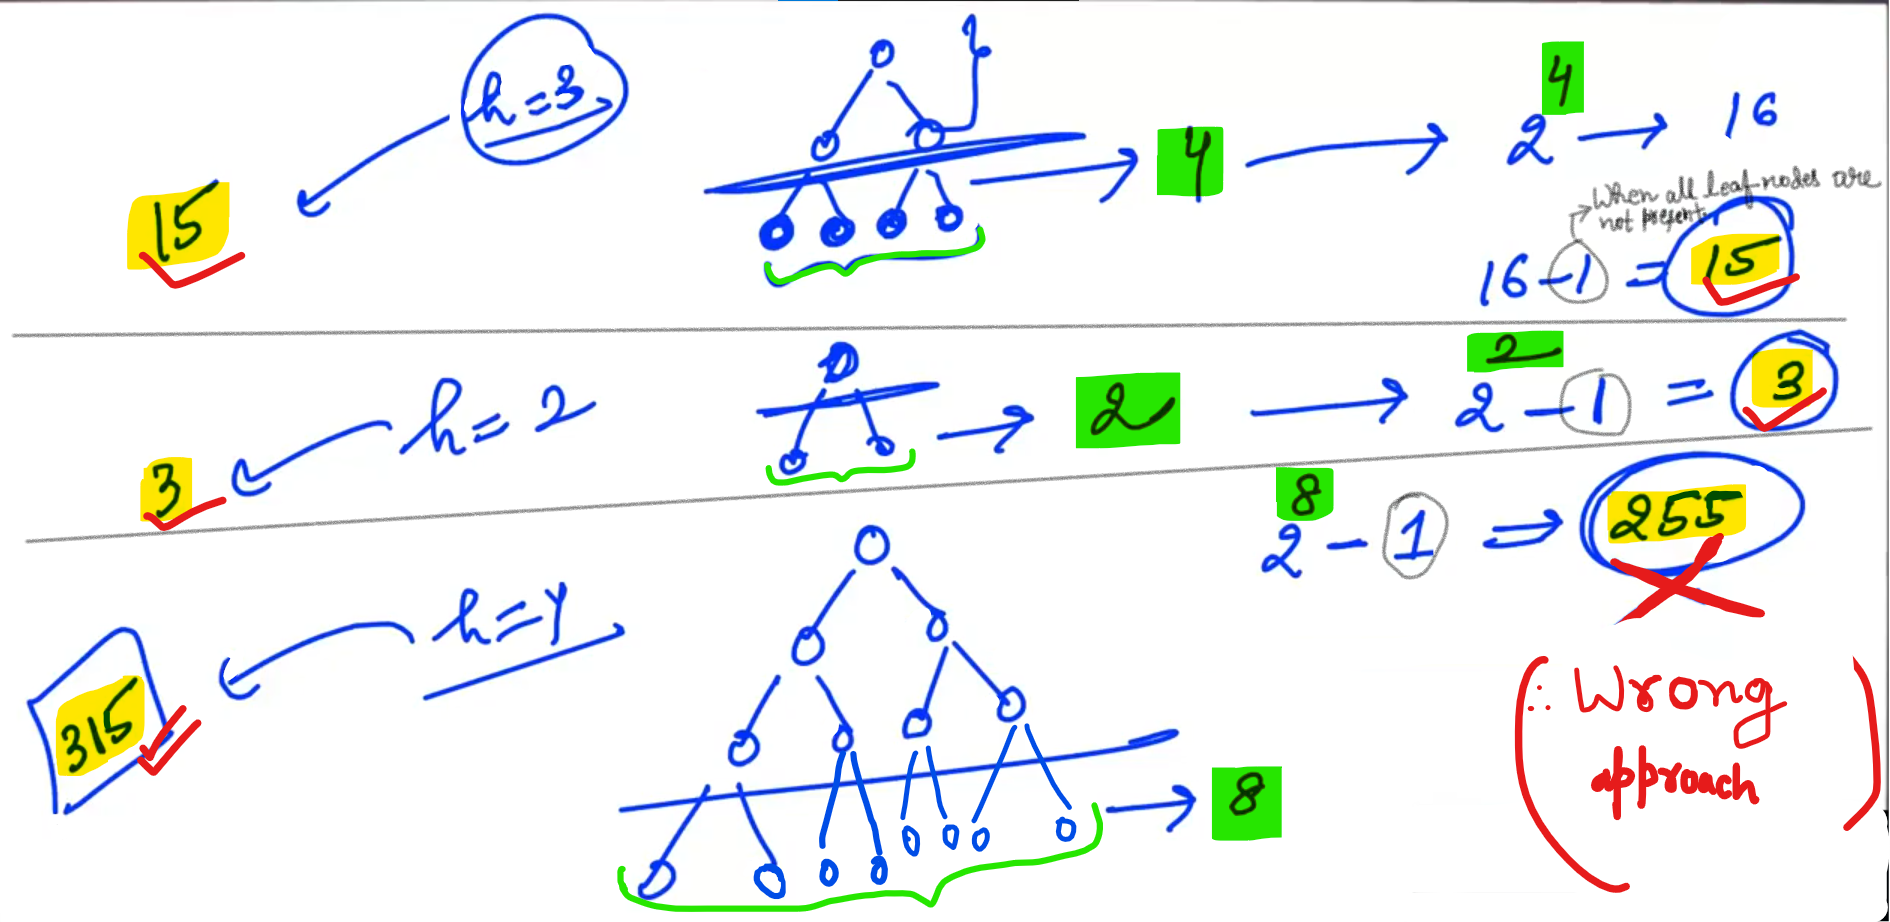 h=3
4
2 → 16
4
15
When all leaf nodes are
not present
16-1 = 15
2
h = 2
2
2 - 1 = 3
3
8
2 - 1 ⇒ 255
h=4
315
∴ Wrong
approach
8